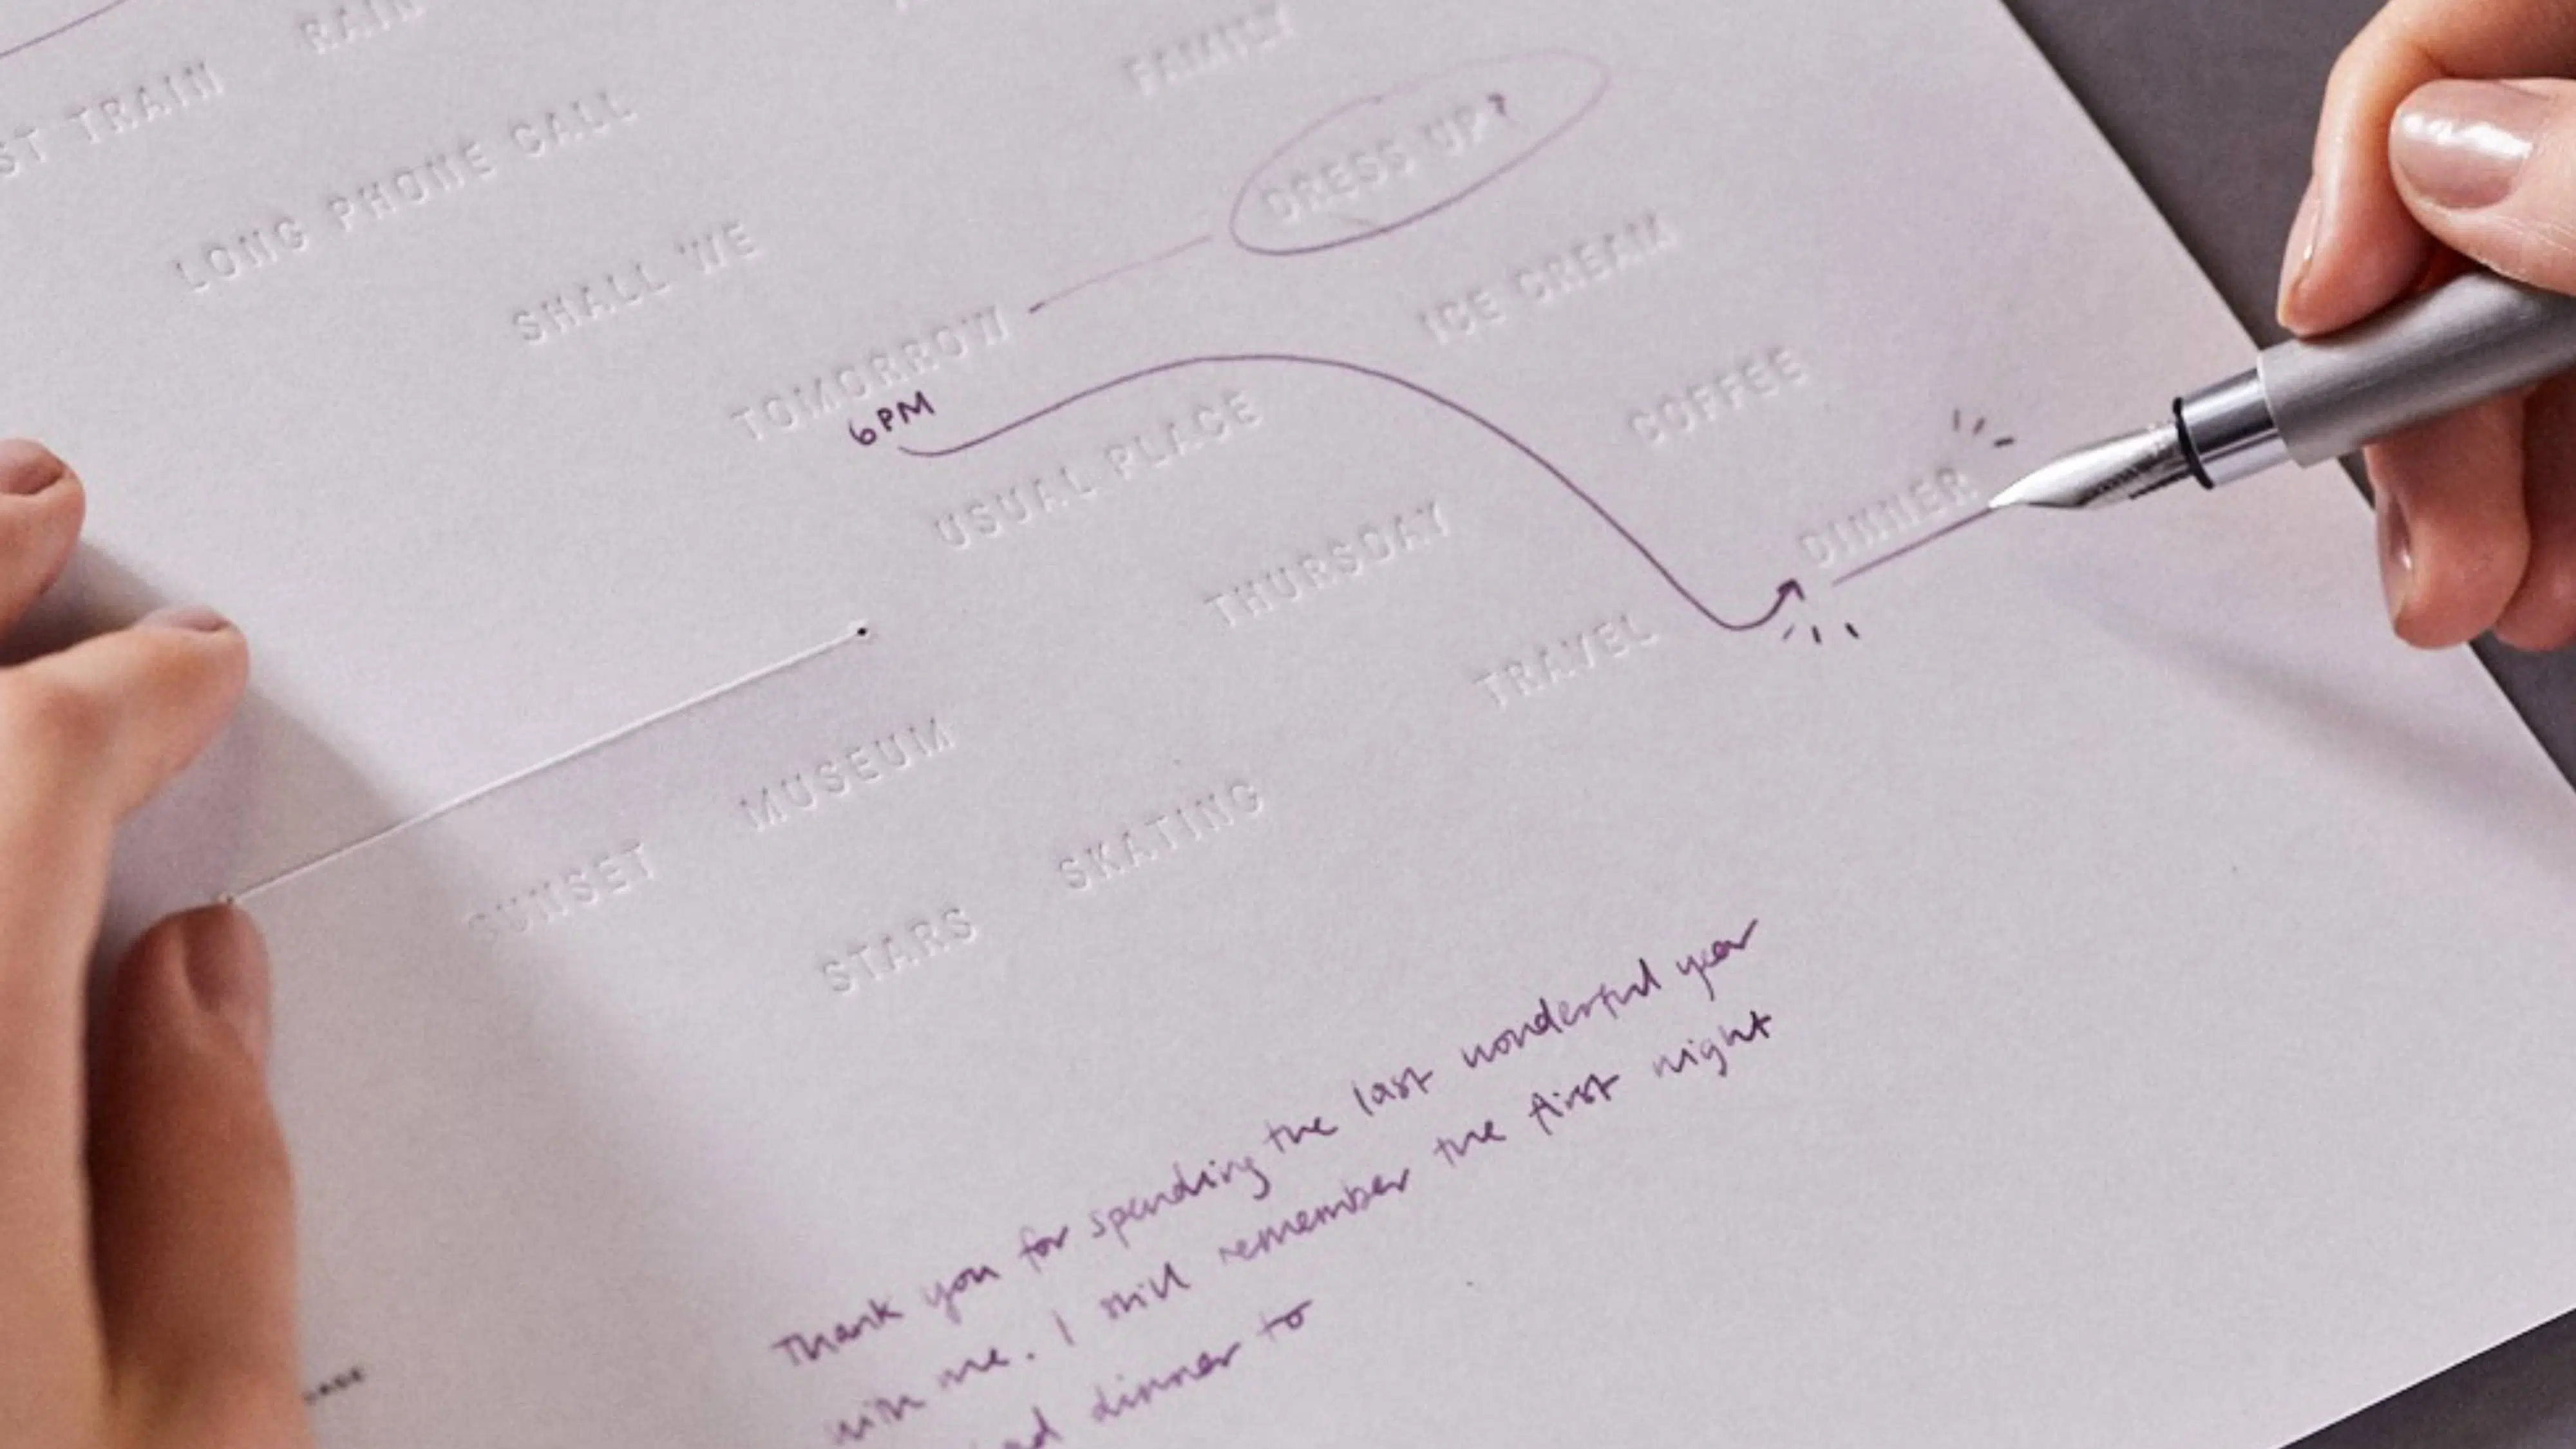 RAIN
TRAIN
FAMILY
LONG PHONE CALL
DRESS UP?
SHALL WE
ICE CREAM
TOMORROW
6PM
COFFEE
USUAL PLACE
DINNER
THURSDAY
TRAVEL
MUSEUM
SKATING
SUNSET
STARS
Thank you for spending the last wonderful year
with me. I still remember the first night
dinner to